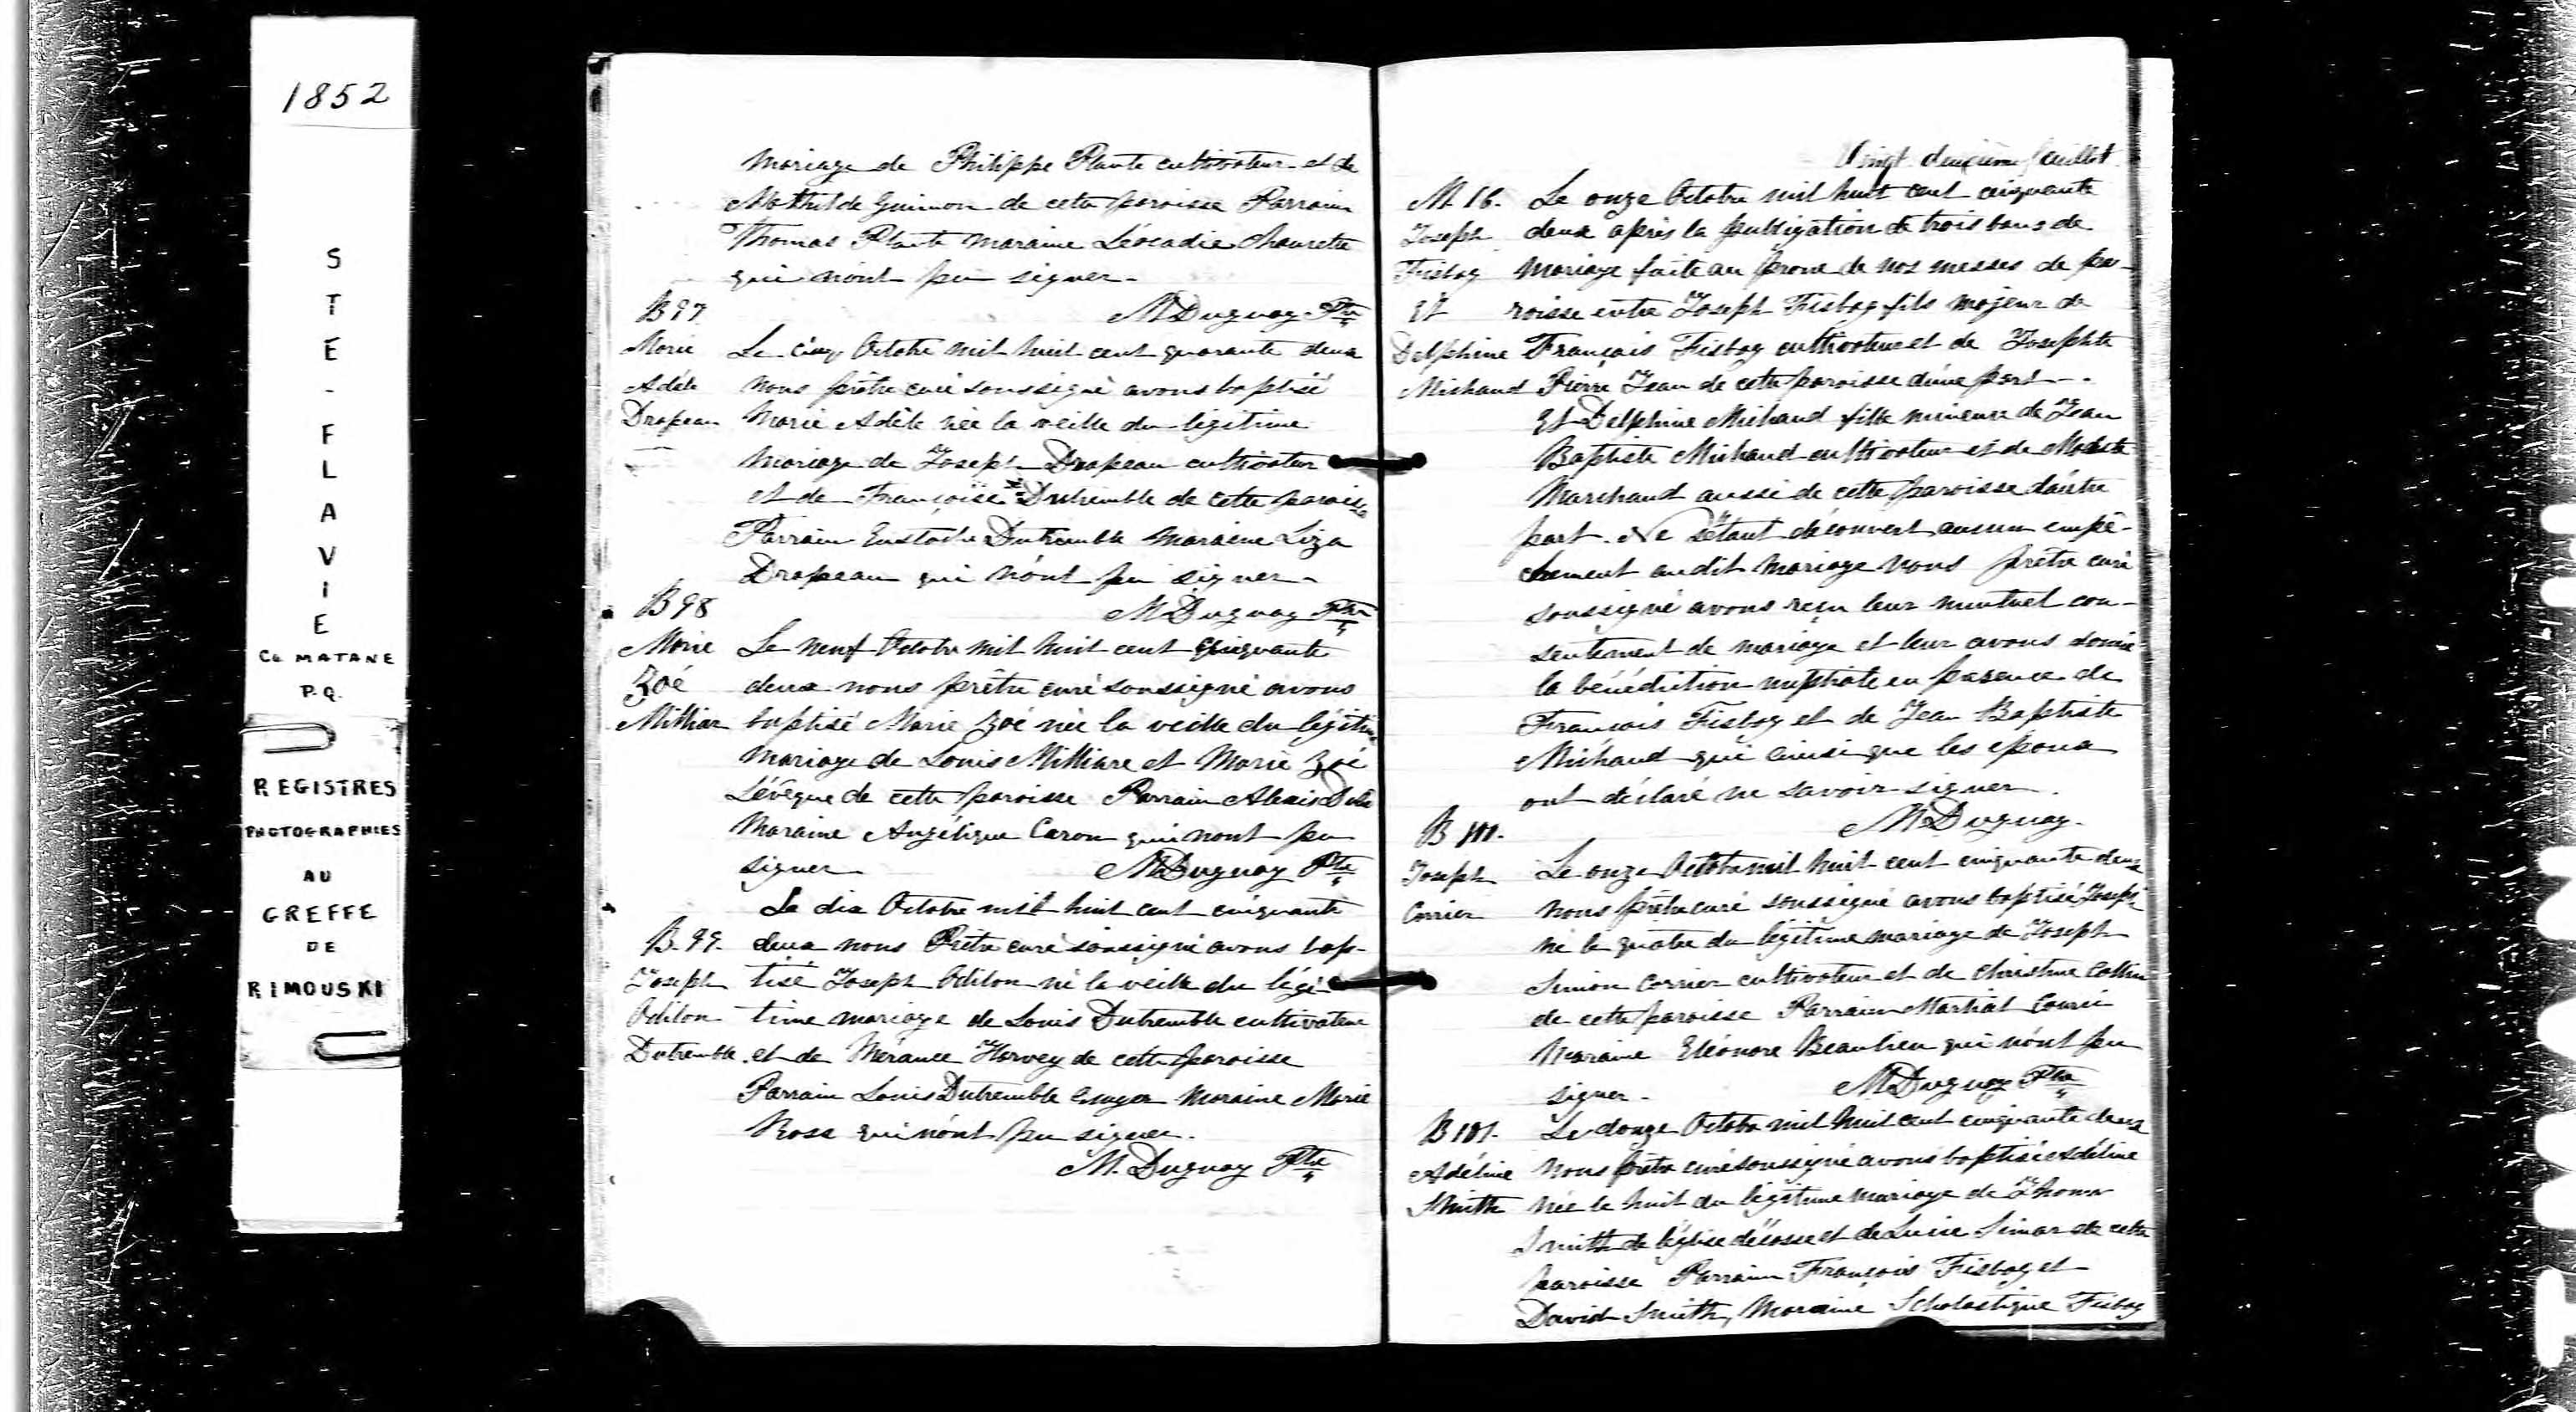 1852
STE-FLAVIE
Co MATANE
P.Q.
REGISTRES
PHOTOGRAPHIES
AU
GREFFE
DE
RIMOUSKI
mariage de Philippe Plante cultivateur et de
Mathilde Guimon de cette paroisse Parrain
Thomas Plante maraine Léocadie
qui n'ont pu signer.
B 97
MDuguay Ptre
Marie
Adèle
Drapeau
Le cinq Octobre mil huit cent quarante deux
nous prêtre curé soussigné avons baptisé
Marie Adèle née la veille du légitime
mariage de Joseph Drapeau cultivateur
et de Françoise Dutremble de cette paroisse
Parrain Eustache Dutremble maraine Liza
Drapeau qui n'ont pu signer.
MDuguay Ptre
B 98
Marie
Zoé
Milliar
Le neuf Octobre mil huit cent cinquante
deux nous prêtre curé soussigné avons
baptisé Marie Zoé née la veille du légitime
mariage de Louis Milliare et Marie Zoé
Lévêque de cette paroisse Parrain Alexis
Maraine Angélique Caron qui n'ont pu
signer MDuguay Ptre
Le dix Octobre mil huit cent cinquante
B. 99.
Joseph
Odilon
Dutremble.
deux nous Prêtre curé soussigné avons bap-
tisé Joseph Odilon né la veille du légi-
time mariage de Louis Dutremble cultivateur
et de Mérance Harvey de cette paroisse
Parrain Louis Dutremble maraine Marie
Ross qui n'ont pu signer.
M. Duguay Ptre
Vingt deuxième feuillet
M. 16.
Joseph
Fisbag
Et
Delphine
Michaud
Le onze Octobre mil huit cent cinquante
deux après la publigation de trois bans de
mariage faite au prone de nos messes de pa-
roisse entre Joseph Fisbag fils majeur de
François Fisbag cultivateur et de Josephte
Pierre Jean de cette paroisse d'une part.
Et Delphine Michaud fille mineure de Jean
Baptiste Michaud cultivateur et de Modeste
Marchand aussi de cette paroisse d'autre
part. Ne s'étant découvert aucun empê-
chement au dit mariage nous prêtre curé
soussigné avons reçu leur mutuel con-
sentement de mariage et leur avons donné
la bénédiction nuptiale en présence de
François Fisbag et de Jean Baptiste
Michaud qui ainsi que les époux
ont déclaré ne savoir signer.
MDuguay.
B
Joseph
Corrier
Le onze Octobre mil huit cent cinquante deux
nous prêtre curé soussigné avons baptisé Joseph
né le quatre du légitime mariage de Joseph
Simon Corrier cultivateur et de Christine
de cette paroisse Parrain Martial
maraine Eléonore Beaulieu qui n'ont pu
signer. MDuguay Ptre
B 101.
Adéline
Smith
Le douze Octobre mil huit cent cinquante deux
nous prêtre curé soussigné avons baptisé Adéline
née le huit du légitime mariage de Thomas
Smith de l'église d'écosse et de Luise Simar de cette
paroisse Parrain François Fisbag et
David Smith, maraine Scholastique Fisbag